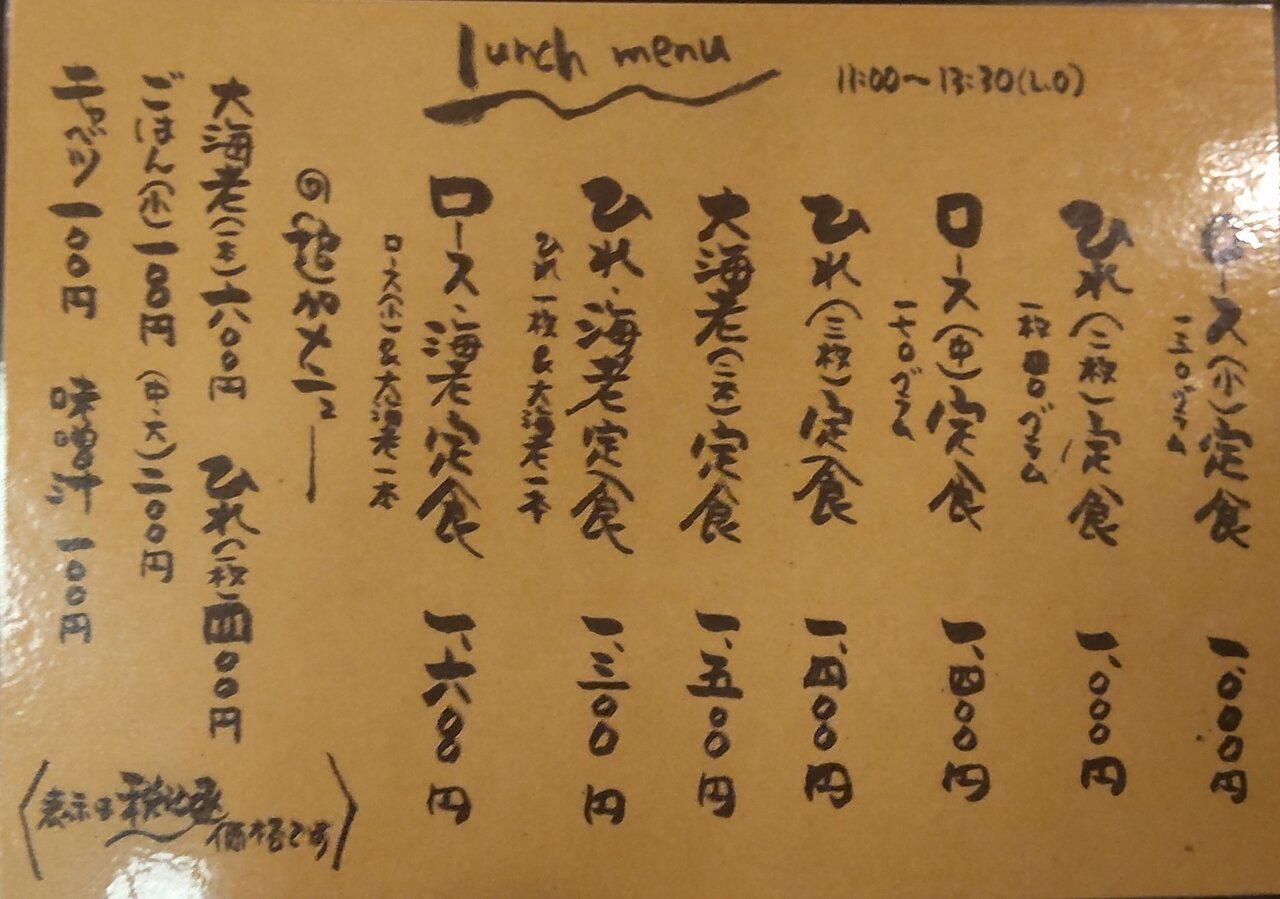 lunch menu
11:00〜13:30(L.O)
ロース(小)定食 一、000円
一三0グラム
ひれ(二枚)定食 一、000円
一枚四0グラム
ロース(中)定食 一、四00円
一七0グラム
ひれ(三枚)定食 一、四00円
大海老(二本)定食 一、五00円
ひれ、海老定食 一、三00円
ひれ一枚&大海老一本
ロース、海老定食 一、六00円
ロース(小)&大海老一本
◎追加メニュー
大海老(一本)六00円 ひれ(一枚)四00円
ごはん(小)一80円 (中・大)二00円
キャベツ 一00円 味噌汁 一00円
表示は税込
価格です